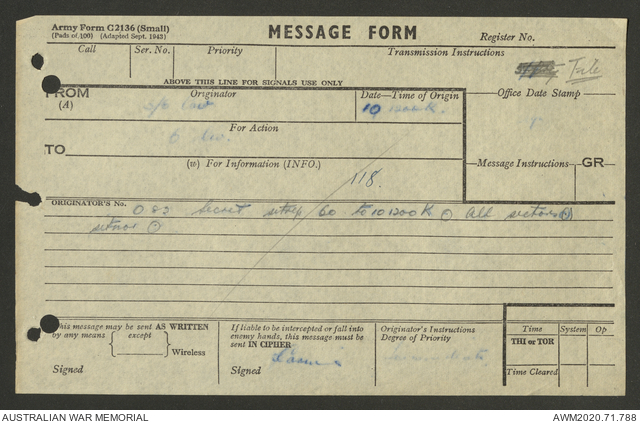 Army Form C2136 (Small)
(Pads of 100) (Adapted Sept. 1943)
MESSAGE FORM
Register No.
Call
Ser. No.
Priority
Transmission Instructions
File
ABOVE THIS LINE FOR SIGNALS USE ONLY
FROM
(A)
Originator
Date—Time of Origin
Office Date Stamp
10 1200 K.
For Action
TO
(w) For Information (INFO.)
Message Instructions
GR
118.
ORIGINATOR'S No.
082 Secret sitrep 60 to 101200K ⊙ All sectors ⊙
sitnor ⊙
This message may be sent AS WRITTEN
by any means
except
Wireless
Signed
If liable to be intercepted or fall into
enemy hands, this message must be
sent IN CIPHER
Signed
Originator's Instructions
Degree of Priority
Immediate
Time
System
Op
THI or TOR
Time Cleared
AUSTRALIAN WAR MEMORIAL
AWM2020.71.788